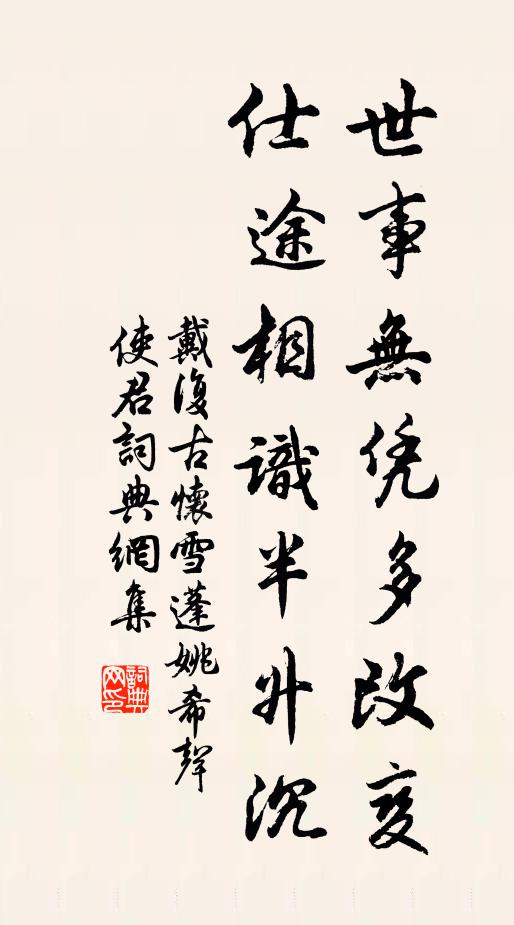 世事無凭多改变
仕途相識半升沉
戴復古懷雪蓬姚希聲
使君詞典網集
詞典網印